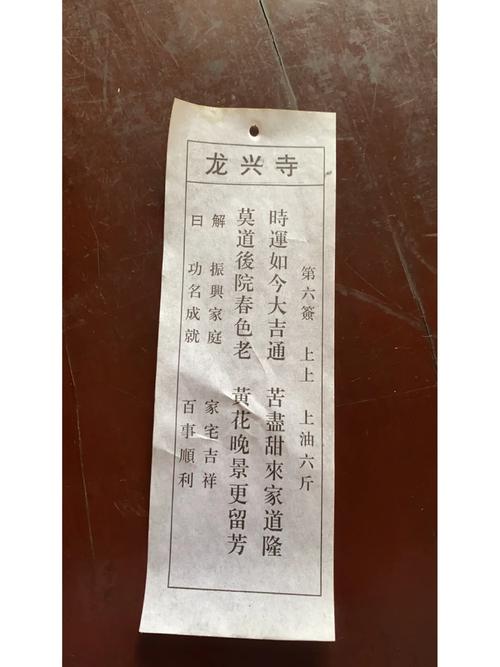 龙兴寺
第六簽 上上 上油六斤
時運如今大吉通 苦盡甜來家道隆
莫道後院春色老 黃花晚景更留芳
解 振興家庭 家宅吉祥
曰 功名成就 百事順利